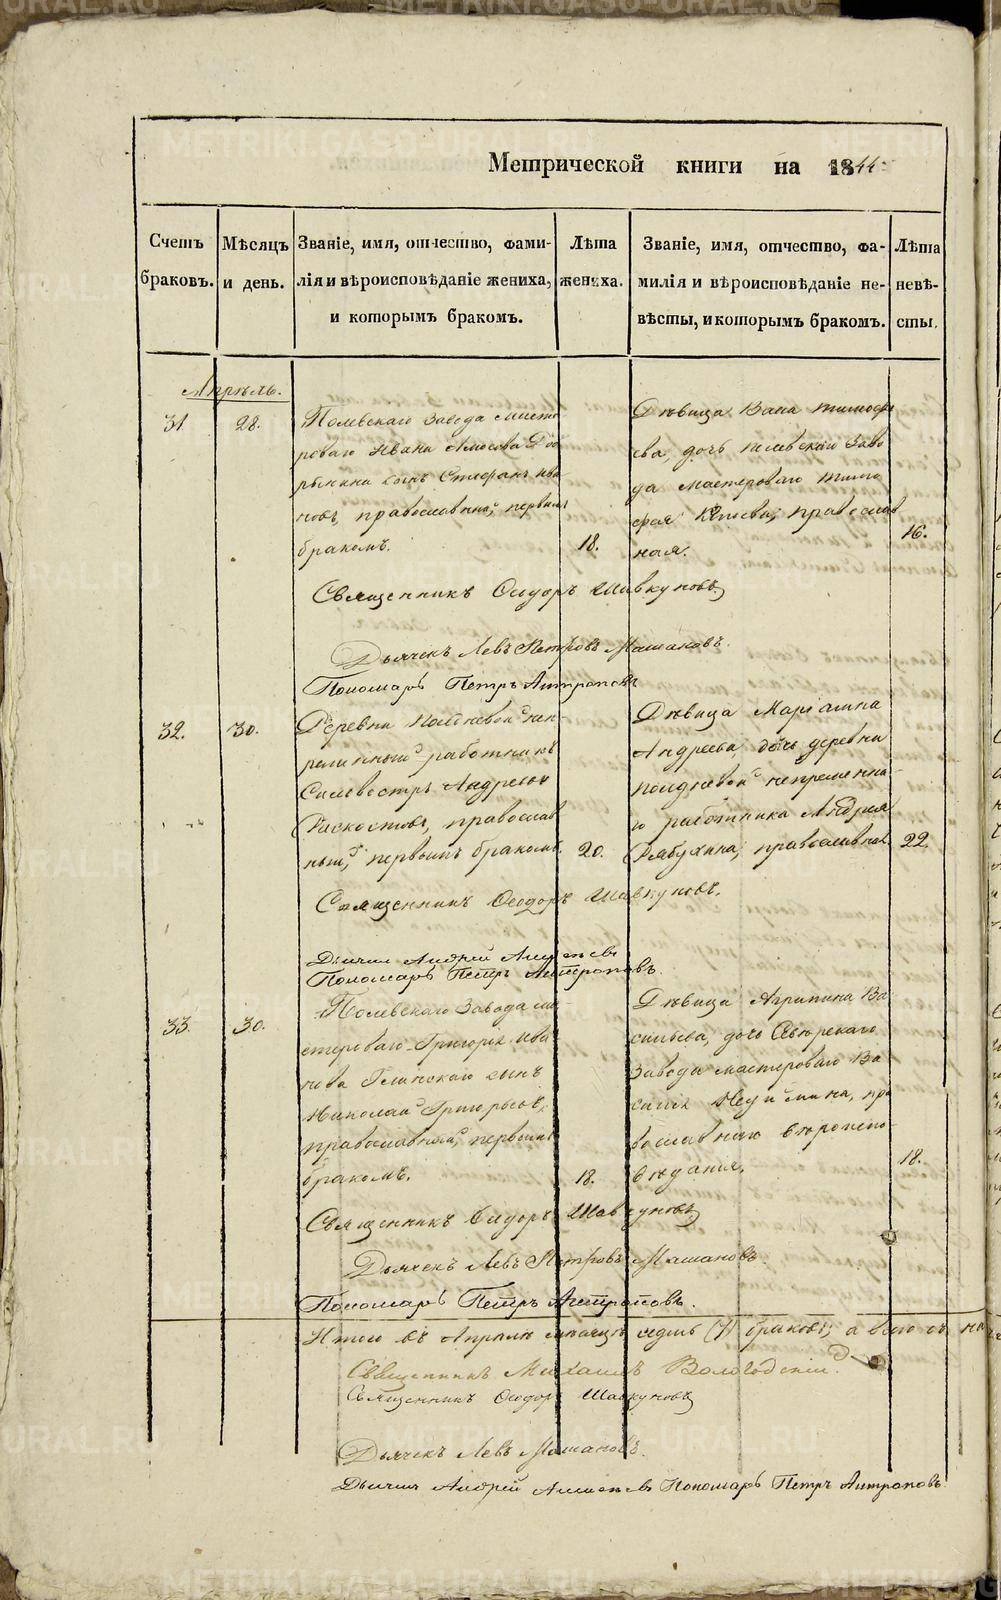 METRIKI.GASO-URAL.RU
Метрической книги на 1844
Счетъ браковъ.
Мѣсяцъ и день.
Званіе, имя, отчество, фами-
лія и вѣроисповѣданіе жениха,
и которымъ бракомъ.
Лѣта
жениха.
Званіе, имя, отчество, фа-
милія и вѣроисповѣданіе не-
вѣсты, и которымъ бракомъ.
Лѣта
невѣ-
сты.
Апрѣль.
31
28.
Полевскаго Завода масте
роваго Ивана
сынъ Стефанъ Ива
новъ, православный, первымъ
бракомъ.
18.
Дѣвица
ева, дочь полевскаго заво
да мастероваго Тимо
фея православ
ная.
16.
Священникъ Ѳеодоръ Шавкуновъ
Дьячекъ Левъ Петровъ Машановъ.
Пономарь Петръ Антроповъ
32.
30.
Деревни Полдневой непре-
работникъ
Силевестръ Андреевъ
православ
ный, первымъ бракомъ.
20.
Дѣвица Маріамна
Андреева, дочь деревни
Полдневой непременна-
го работника Андрея
Рябухина, православная.
22.
Священникъ Ѳеодоръ Шавкуновъ.
Дьячекъ Андрей
Пономарь Петръ Антроповъ.
33.
30.
Полевскаго Завода ма-
стероваго Григорья Ива
нова Глинскаго сынъ
Николай Григорьевъ,
православный, первымъ
бракомъ.
18.
Дѣвица Агрипина Ва
сильева, дочь Сѣверскаго
Завода мастероваго Ва
силья пра
вославнаго вѣроиспо
вѣданія.
18.
Священникъ Ѳеодоръ Шавкуновъ
Дьячекъ Левъ Петровъ Машановъ.
Пономарь Петръ Антроповъ.
Итого въ Апрѣлѣ мѣсяцѣ седмь (7) браковъ, а всего съ на
Священникъ Михаилъ Вологодскій
Священникъ Ѳеодоръ Шавкуновъ
Дьячекъ Левъ Машановъ.
Дьячекъ Андрей Пономарь Петръ Антроповъ